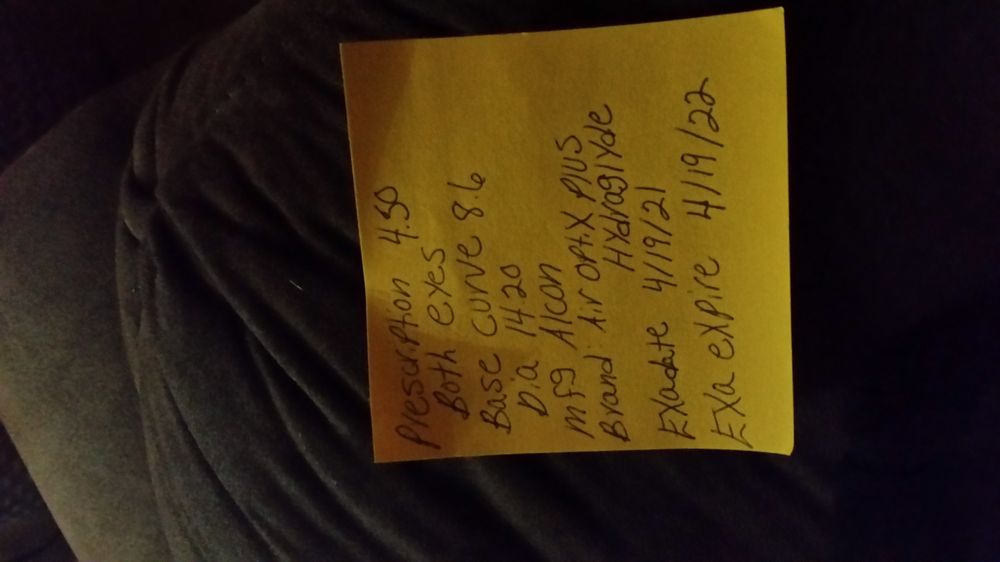 Prescription 4.50
Both eyes
Base curve 8.6
Dia 14.20
mfg Alcon
Brand: Air Optix plus
Hydraglyde
Exadate 4/19/21
Exa expire 4/19/22